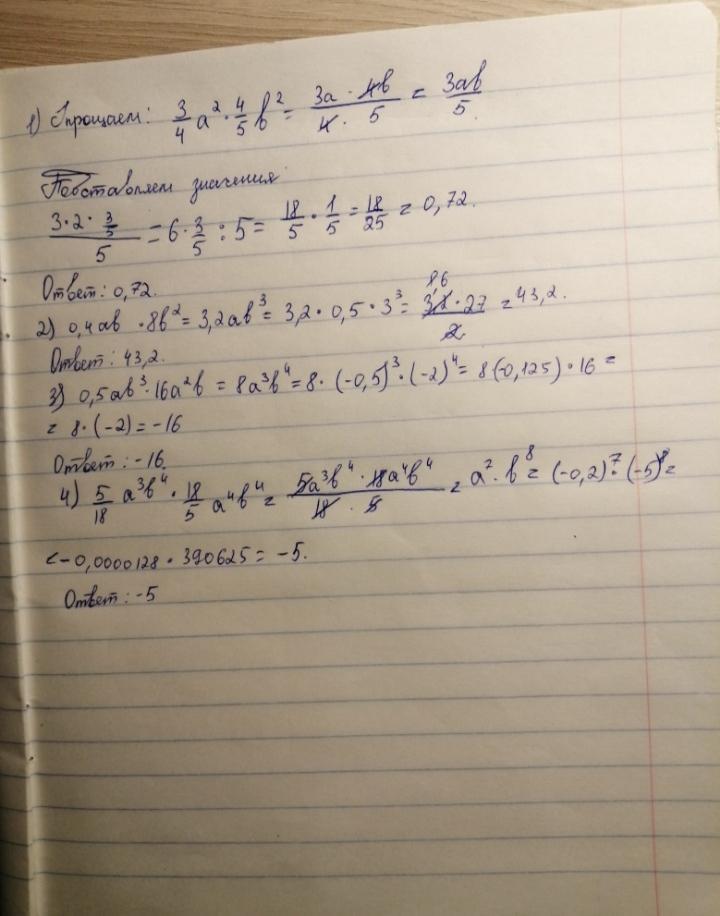 1) Упрощаем: 3/4 a² · 4/5 b² = 3a · 4b / 4 · 5 = 3ab/5
Подставляем значения
3·2·3/5 / 5 = 6·3/5 : 5 = 18/5 · 1/5 = 18/25 = 0,72.
Ответ: 0,72.
2) 0,4ab · 8b² = 3,2ab³ = 3,2 · 0,5 · 3³ = 3,2 · 27 / 2 = 43,2.
Ответ: 43,2.
3) 0,5ab³ · 16a²b = 8a³b⁴ = 8 · (-0,5)³ · (-2)⁴ = 8(-0,125) · 16 =
= 8 · (-2) = -16
Ответ: -16.
4) 5/18 a³b⁴ · 18/5 a⁴b⁴ = 5a³b⁴ · 18a⁴b⁴ / 18 · 5 = a⁷ · b⁸ = (-0,2)⁷ · (-5)⁸ =
= -0,0000128 · 390625 = -5.
Ответ: -5